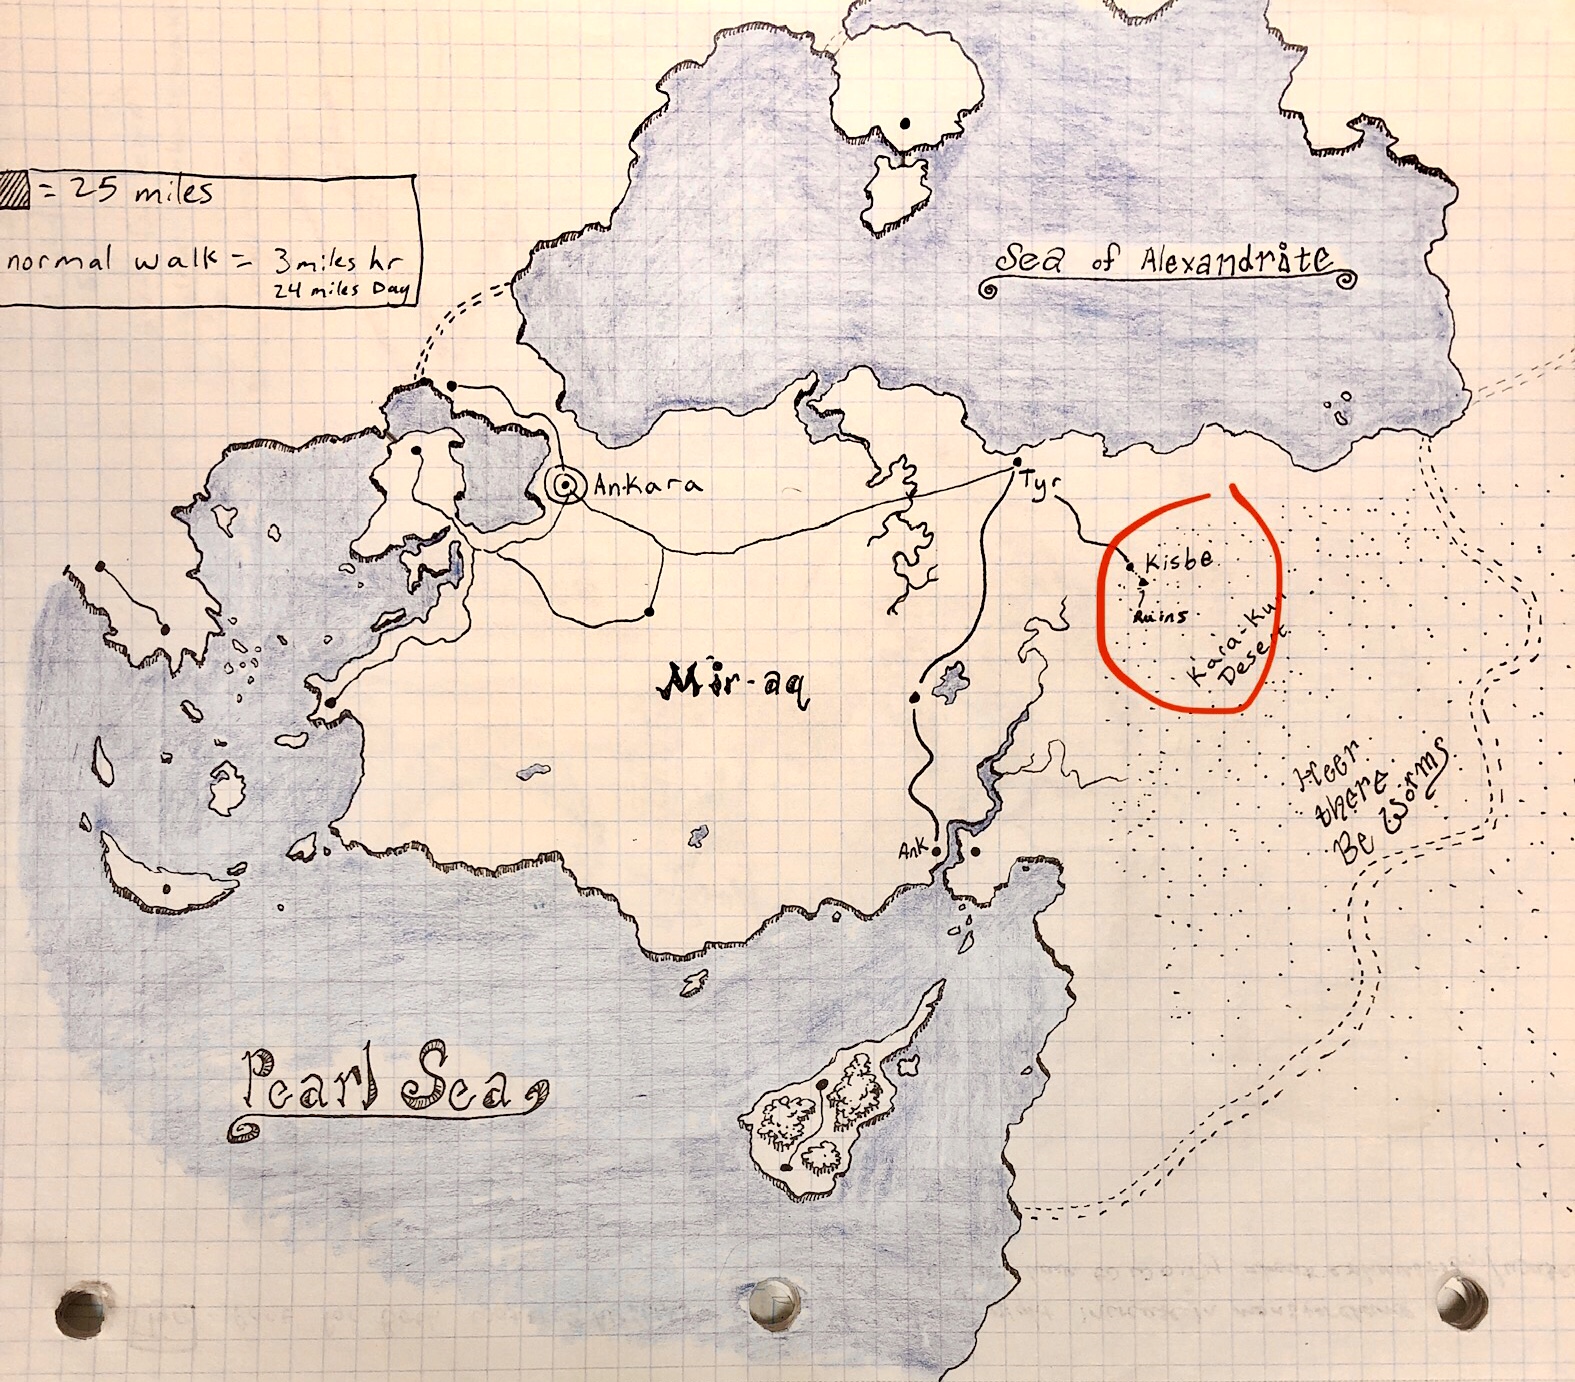 = 25 miles
normal walk = 3 miles hr
24 miles Day
Sea of Alexandrite
Ankara
Tyr
Kisbe
Ruins
Kara-Kum
Desert
Mir-aq
Heer
there
Be Worms
Ank
Pearl Sea